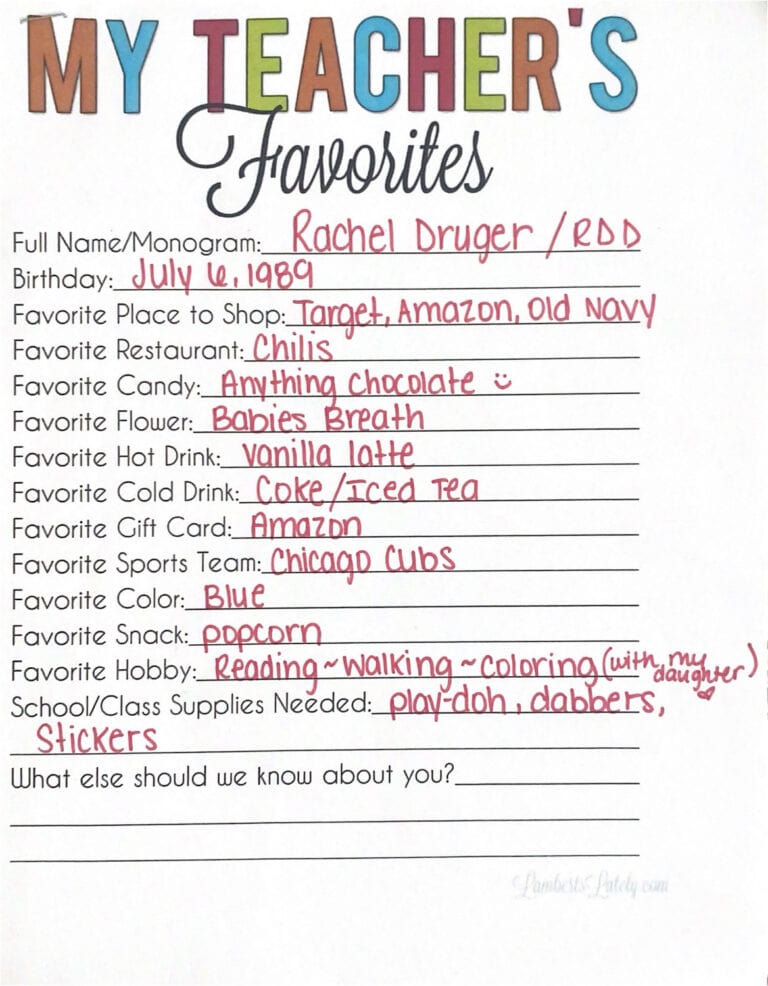 MY TEACHER'S
Favorites
Full Name/Monogram: Rachel Druger / RDD
Birthday: July 6, 1989
Favorite Place to Shop: Target, Amazon, Old Navy
Favorite Restaurant: Chilis
Favorite Candy: Anything chocolate
Favorite Flower: Babies Breath
Favorite Hot Drink: vanilla latte
Favorite Cold Drink: Coke/Iced Tea
Favorite Gift Card: Amazon
Favorite Sports Team: Chicago Cubs
Favorite Color: Blue
Favorite Snack: popcorn
Favorite Hobby: Reading~walking~coloring (with my daughter)
School/Class Supplies Needed: play-doh, dabbers,
Stickers
What else should we know about you?
LambertsLately.com